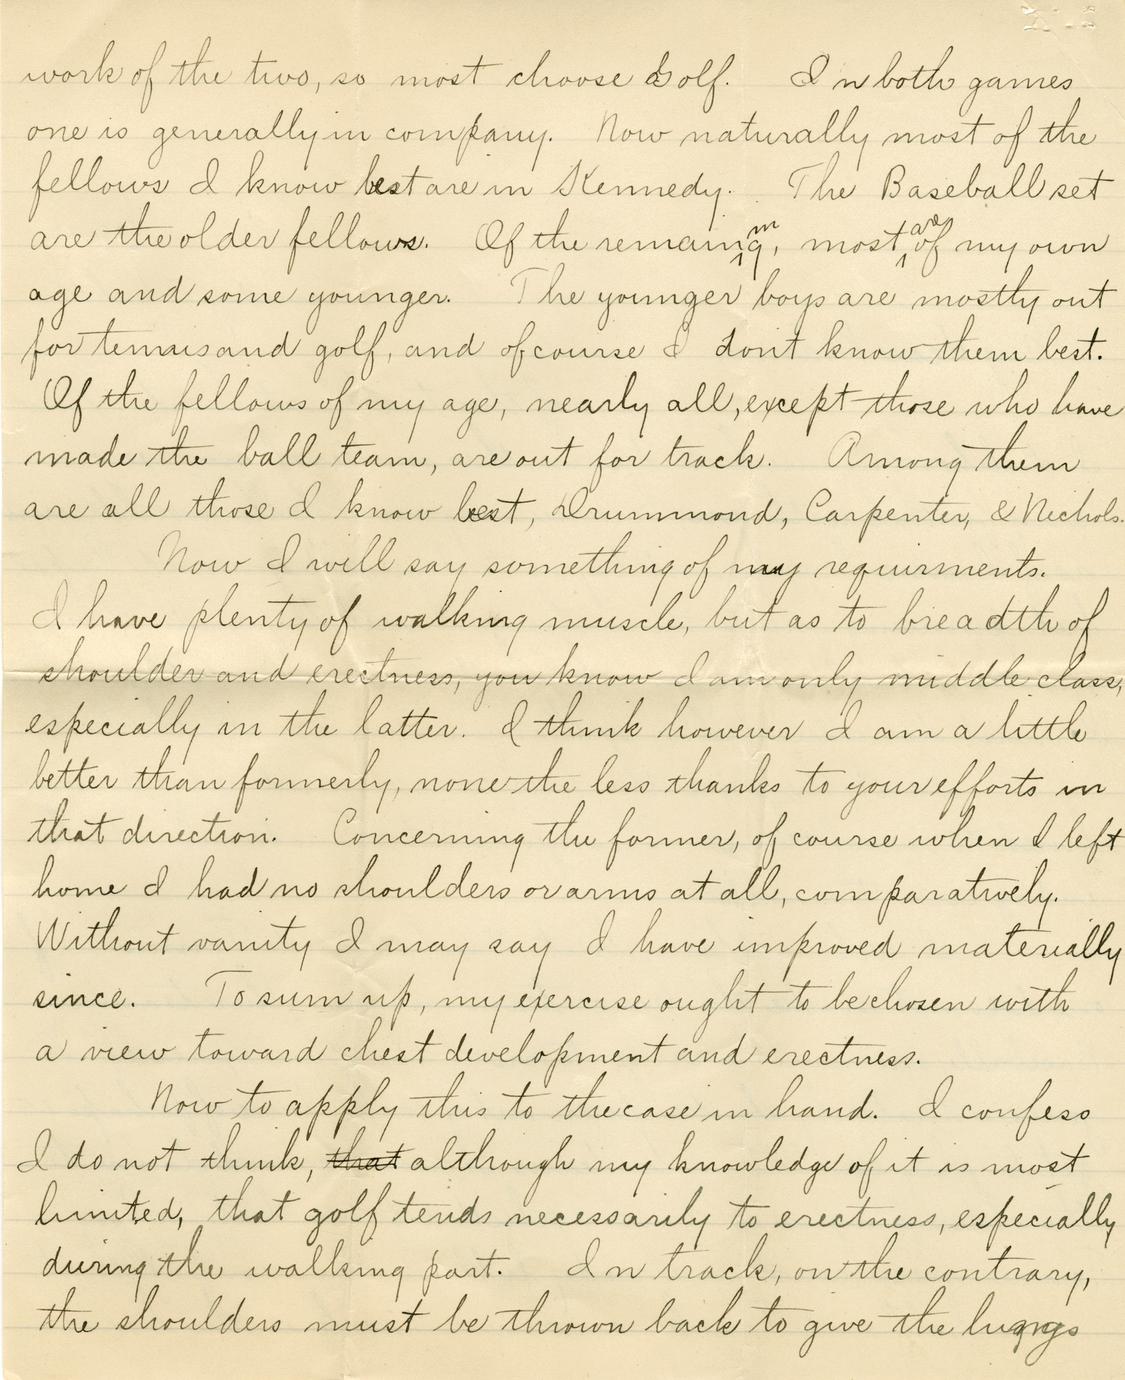 work of the two, so most choose Golf. In both games
one is generally in company. Now naturally most of the
fellows I know best are in Kennedy. The Baseball set
are the older fellows. Of the remaining, most are of my own
age and some younger. The younger boys are mostly out
for tennis and golf, and of course I dont know them best.
Of the fellows of my age, nearly all, except those who have
made the ball team, are out for track. Among them
are all those I know best, Drummond, Carpenter, & Nichols.
Now I will say something of my requirments.
I have plenty of walking muscle, but as to breadth of
shoulder and erectness, you know I am only middle class,
especially in the latter. I think however I am a little
better than formerly, none the less thanks to your efforts in
that direction. Concerning the former, of course when I left
home I had no shoulders or arms at all, comparatively.
Without vanity I may say I have improved materially
since. To sum up, my exercise ought to be chosen with
a view toward chest development and erectness.
Now to apply this to the case in hand. I confess
I do not think, that although my knowledge of it is most
limited, that golf tends necessarily to erectness, especially
during the walking part. In track, on the contrary,
the shoulders must be thrown back to give the lungs